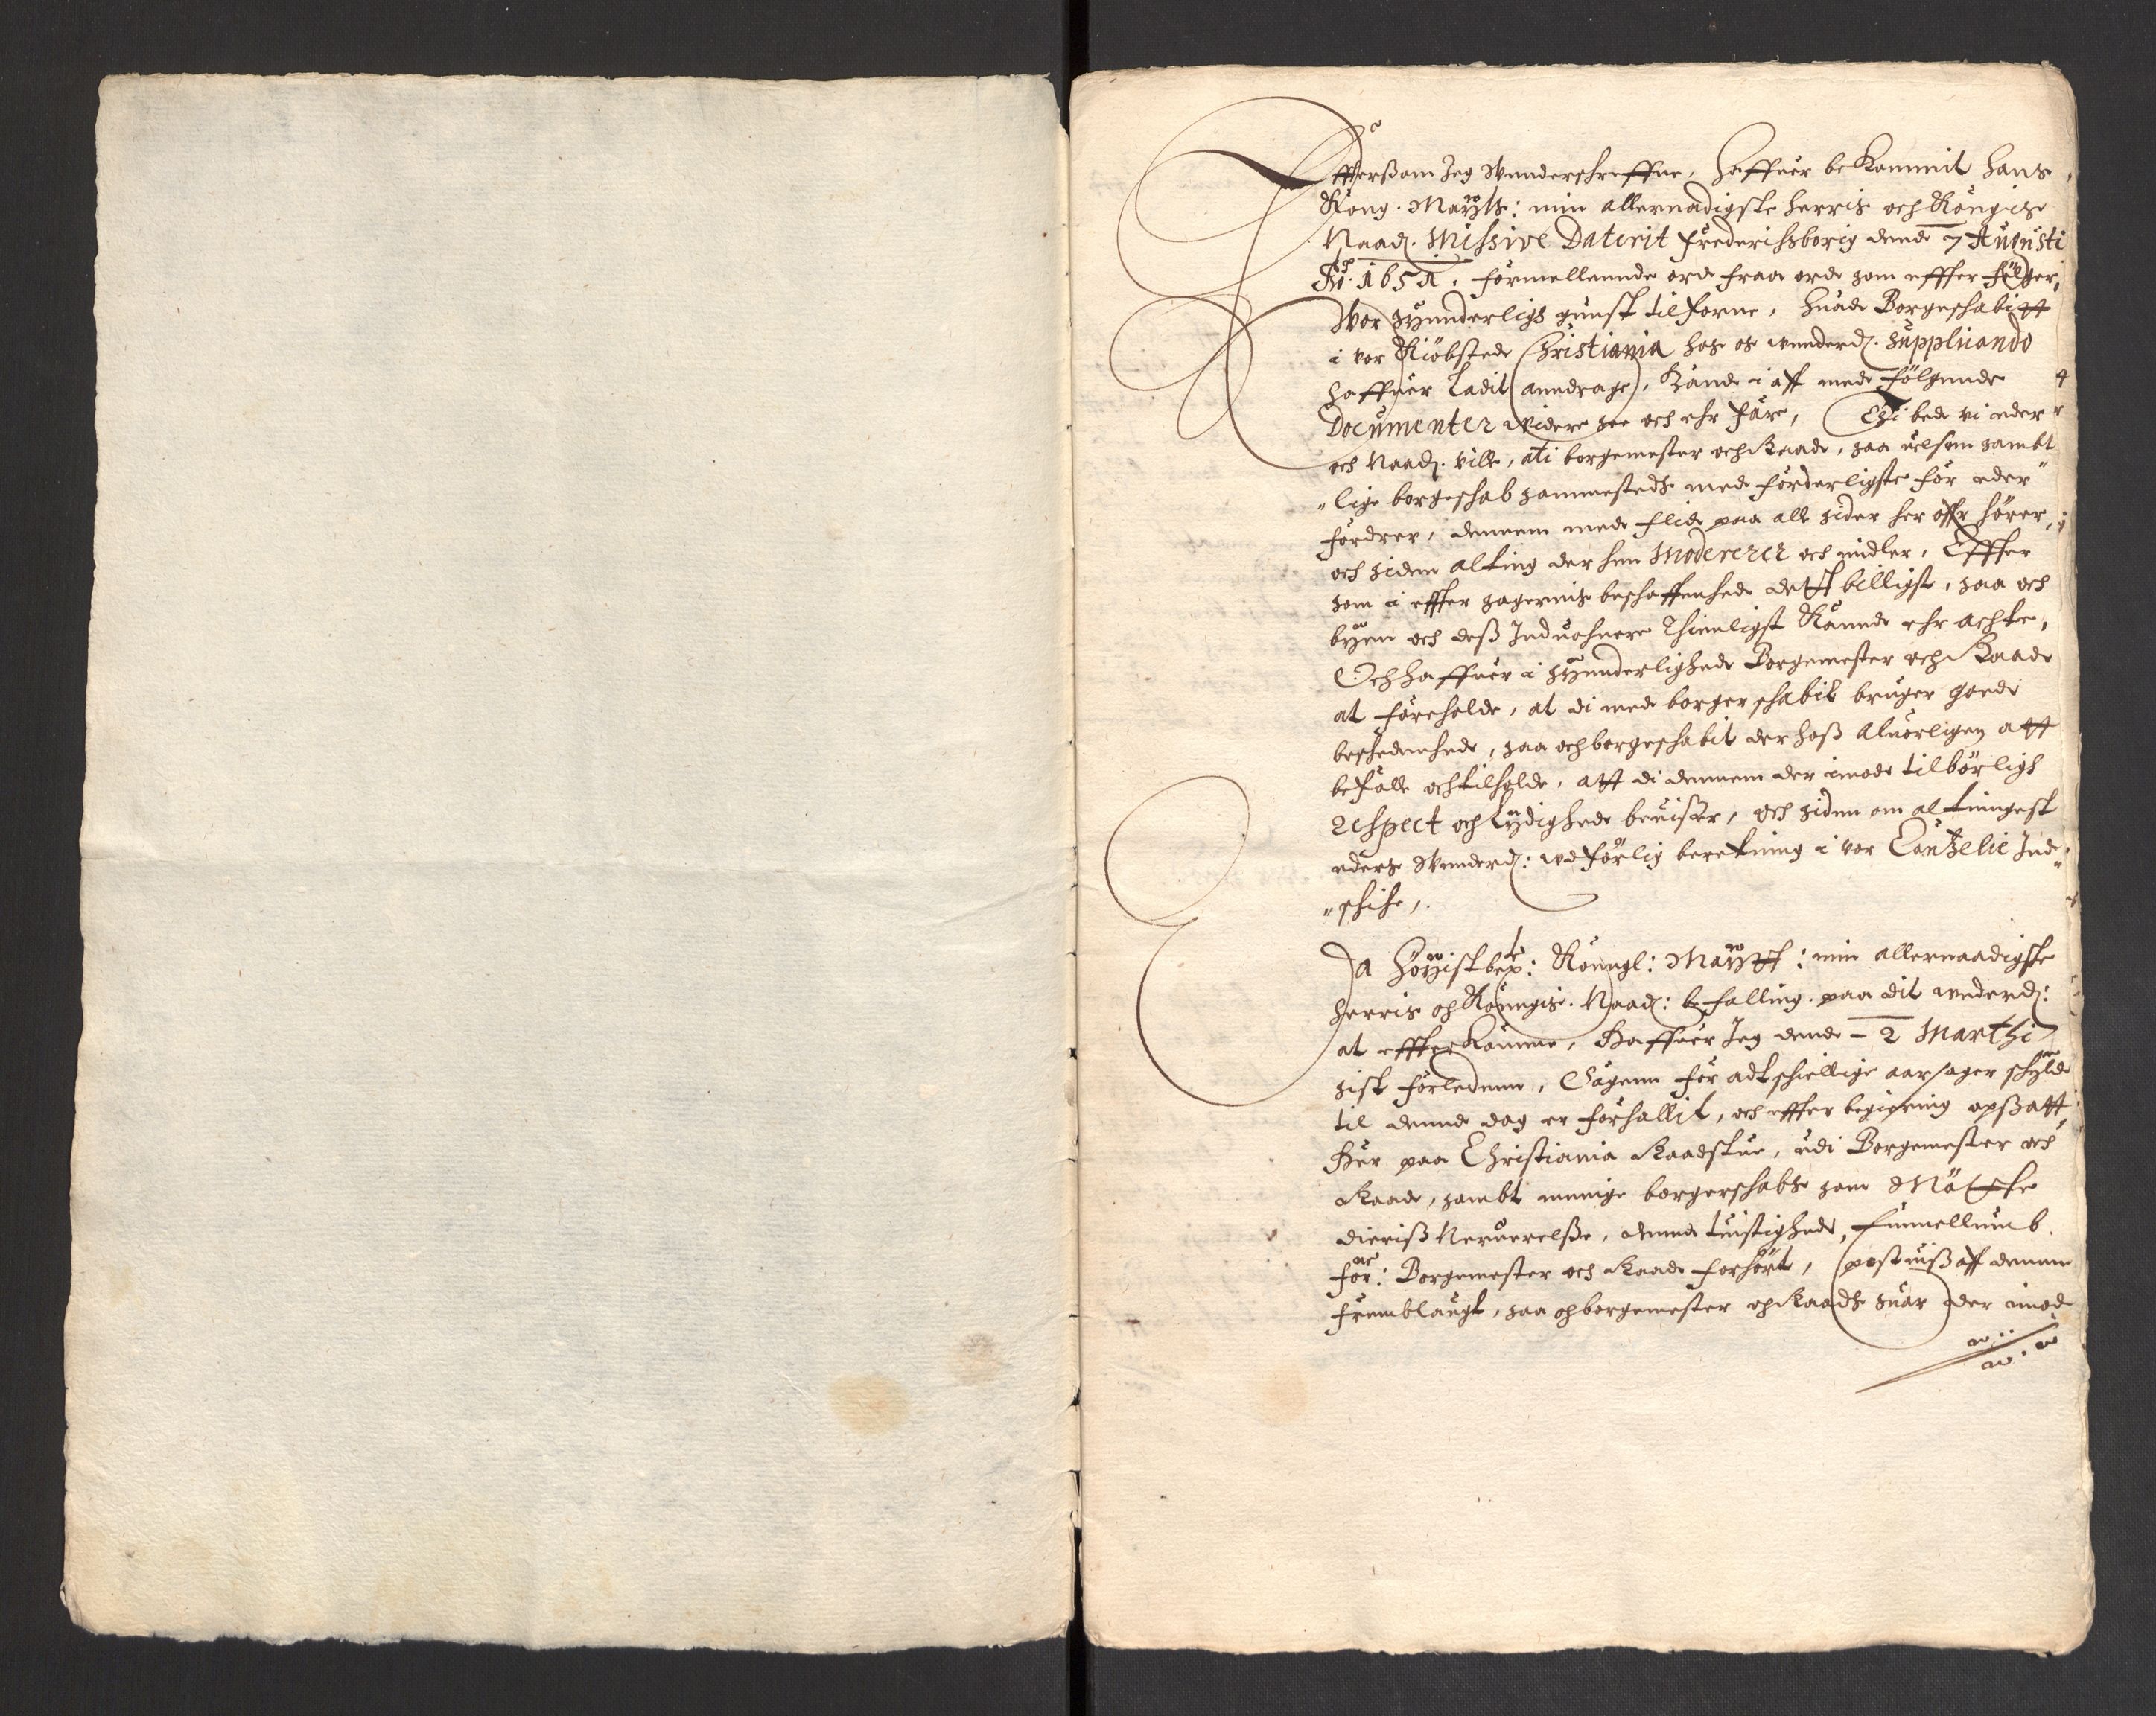 Effterßom Jeg Wnnderschreffne, Haffuer bekommit Hans
Kong. Maÿts: min allernadigste Herris och Kongis
Naadh. Missive Daterit Frederichsborig dend 7 Augusti
Ao. 1651. formellennde ord fraa ord som effter følger,
Wor Synnderligs gunst tilforne, Huad Borgeschabitt
i vor Kiøbsted Christiania hos os wnnderdh. suppliando
haffuer ladit anndrage, Kand i aff med følgende
Documenter widere see och ehr fare, Thi bede vi eder
och Naadh. ville, ati borgemester och Raad, saa uelsom sambt
"lige borgeschab sammesteds med forderligste for eder"
fordrer, dennem med flid paa alle sider her offr hører,
och siden alting der hen Modererer och midler, Effter
som i effter sagernis beschaffenhed dett billigst, saa och
byen och deß Induohnere Thienligst Kannd ehr achte,
Och haffuer i synnderlighed Borgemester och Raad
at foreholde, at di med borgerschabit bruger goed
beschedenhed, saa och borgeschabit der hoß Aluorligen att
befalle och tilholde, att di dennem der imod tilbørligh
respect och Lydighed beuißer, och siden om altinngest
eders Wnnderdh: wdførlig beretning i vor Canzelie Ind"
"schiche,.
Da Høyistbete: Konngl: Maÿtt: min allernaadigste
Herris och Konngis. Naadh: befalling. paa dit wnderdh:
at effterkomme, Haffuer Jeg dend - 2 Marthi
sist forledenn, Sagenn for adtschiellige aarsager schyld
til dennd dag er forhallit, och effter begiering opßatt
Her paa Christiania Raadstue, udi Borgemester och
Raad, sambt menige borgerschabs som Møtte
dieriß Neruerelße, denne tuistighed, Emmellumb
for:ne Borgemester och Raad forhørt, postuiß aff dennem
fremblaugt, saa och borgemester och Raads suar der imod